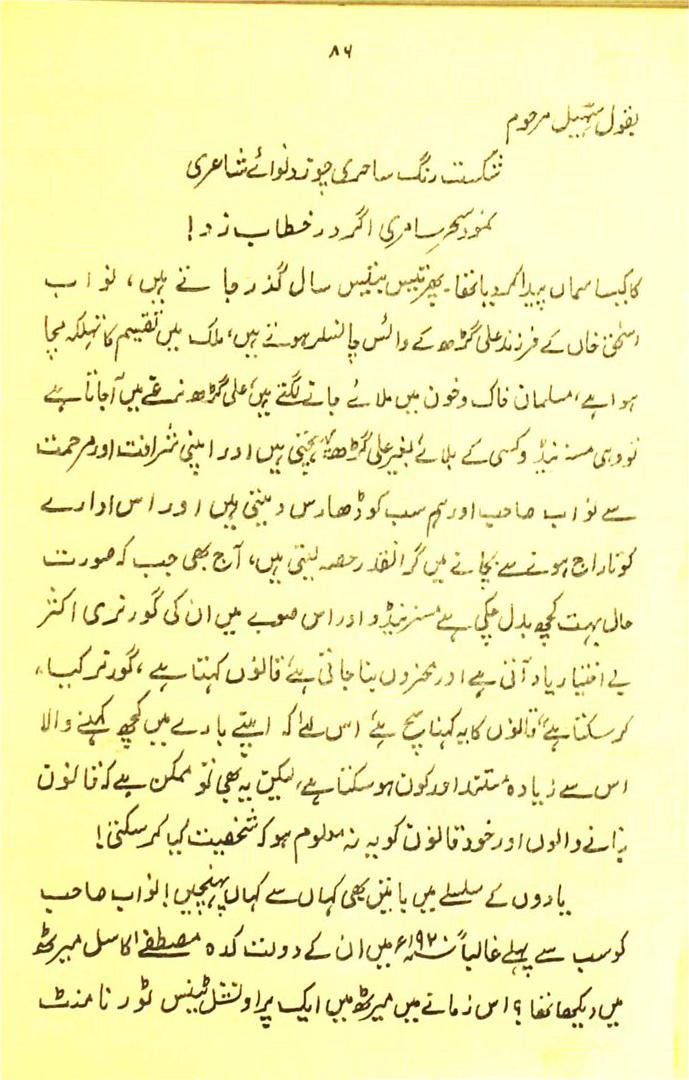 ۸۶
بقول سہیل مرحوم
شکست رنگ ساحری چو زد نوائے شاعری
نمود سحرِ سامری اگر در خطاب زد!
کا کیسا سماں پیدا کر دیا تھا۔ پھر تیس بتیس سال گذر جاتے ہیں، نواب
اسحٰق خاں کے فرزند علی گڑھ کے وائس چانسلر ہوتے ہیں، ملک میں تقسیم کا تہلکہ مچا
ہوا ہے، مسلمان خاک و خون میں ملائے جانے لگتے ہیں، علی گڑھ نرغے میں آجاتا ہے
تو وہی مسز نیڈو کسی کے بلائے بغیر علی گڑھ پہنچتی ہیں اور اپنی شرافت اور مرحمت
سے نواب صاحب اور ہم سب کو ڈھارس دیتی ہیں اور اس ادارے
کو تاراج ہونے سے بچانے میں گرانقدر حصہ لیتی ہیں، آج بھی جب کہ صورت
حال بہت کچھ بدل چکی ہے مسز نیڈو اور اس صوبے میں ان کی گورنری اکثر
بے اختیار یاد آتی ہے اور محزوں بنا جاتی ہے، قانون کہتا ہے، گورنر کیا
کر سکتا ہے، قانون کا یہ کہنا سچ ہے، اس لئے کہ اپنے بارے میں کچھ کہنے والا
اس سے زیادہ مستند اور کون ہو سکتا ہے، لیکن یہ بھی تو ممکن ہے کہ قانون
بنانے والوں اور خود قانون کو یہ نہ معلوم ہو کہ شخصیت کیا کر سکتی!
یادوں کے سلسلے میں باتیں بھی کہاں سے کہاں پہنچیں! نواب صاحب
کو سب سے پہلے غالباً ۱۹۲۰ء میں ان کے دولت کدہ مصطفےٰ کاسل میرٹھ
میں دیکھا تھا؟ اس زمانے میں میرٹھ میں ایک پراونشل ٹینس ٹورنامنٹ